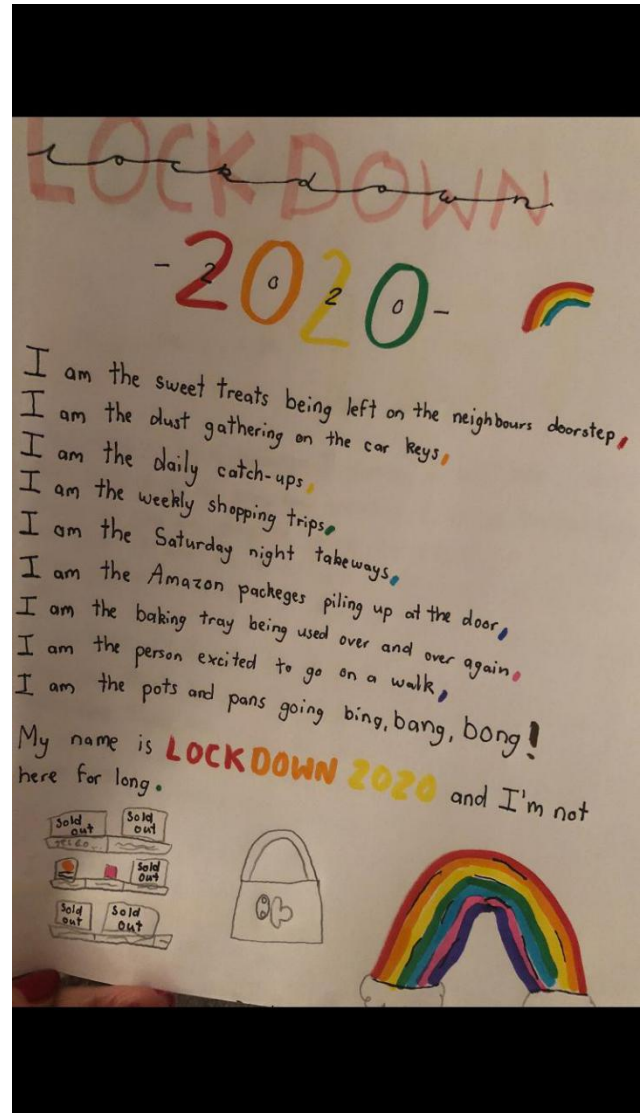 LOCKDOWN
lockdown
-2020-
2020
I am the sweet treats being left on the neighbours doorstep,
I am the dust gathering on the car keys,
I am the daily catch-ups,
I am the weekly shopping trips,
I am the Saturday night takeways,
I am the Amazon packeges piling up at the door,
I am the baking tray being used over and over again,
I am the person excited to go on a walk,
I am the pots and pans going bing, bang, bong!
My name is LOCKDOWN 2020 and I'm not
here for long.
Sold out Sold out
Sold out
Sold out Sold out